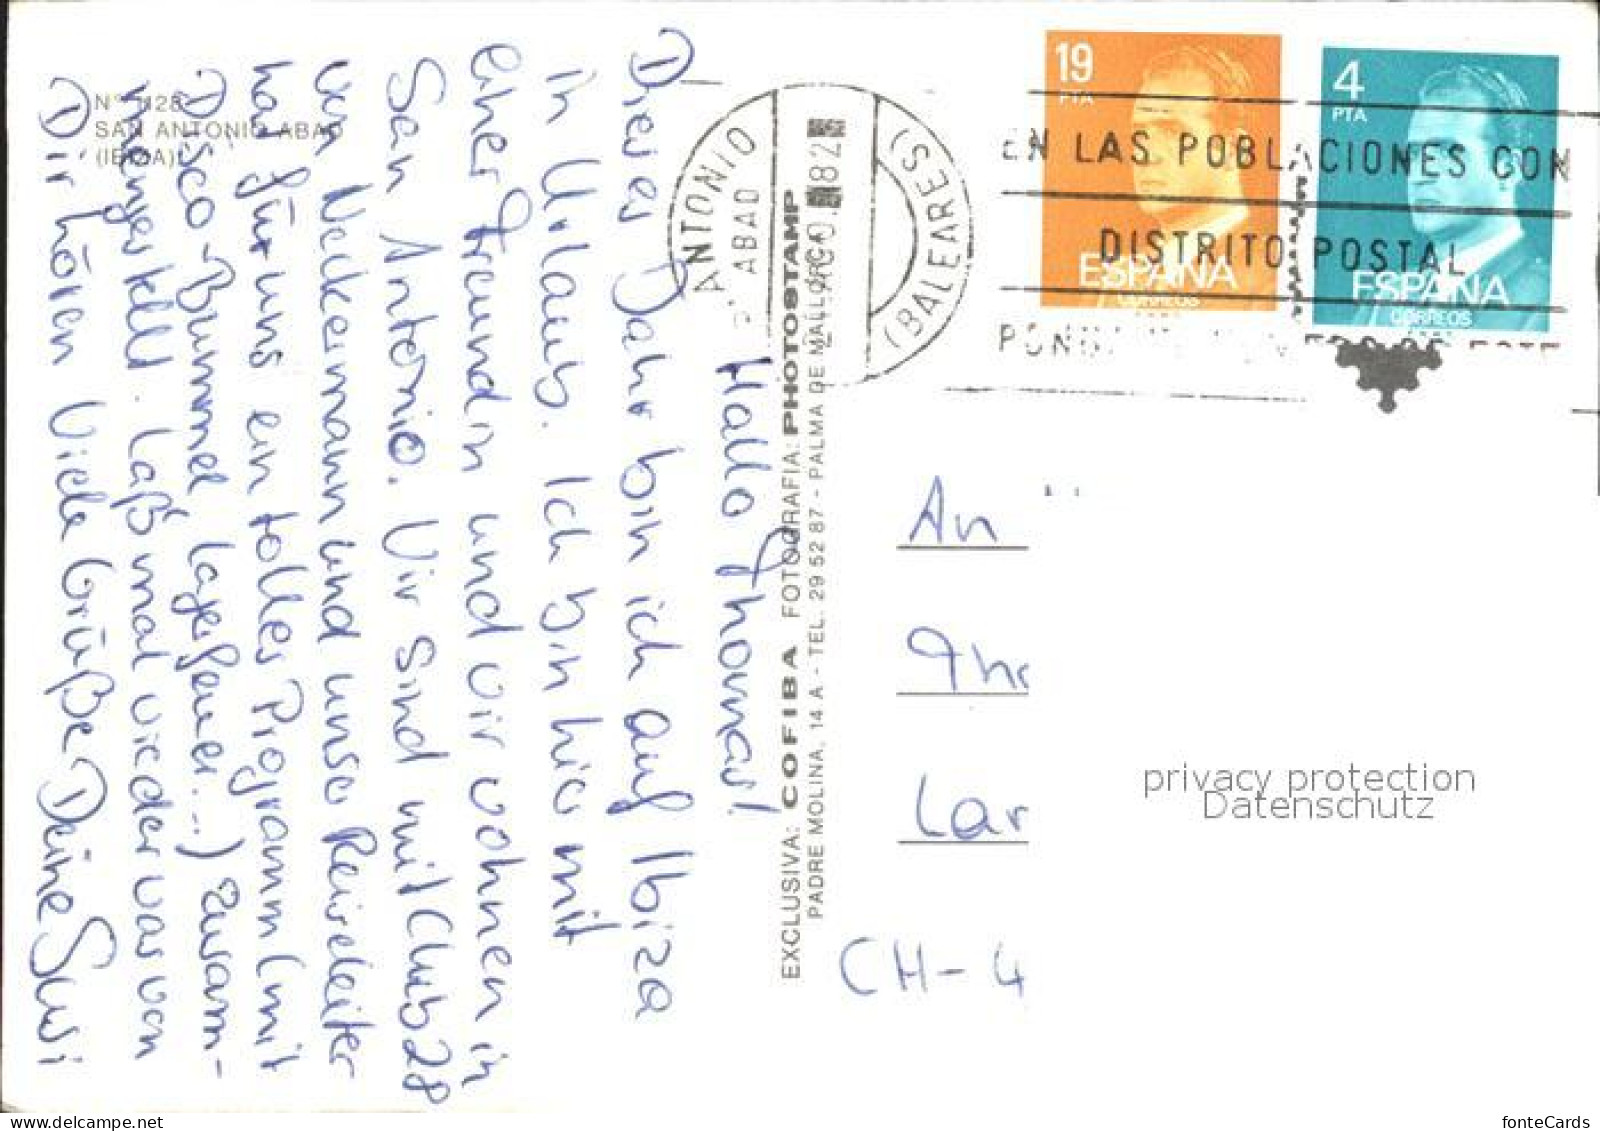 Nº 1128
SAN ANTONIO ABAD
(IBIZA)
Hallo Thomas!
Dieses Jahr bin ich auf Ibiza
in Urlaub. Ich bin hier mit
einer Freundin und wir wohnen in
San Antonio. Wir sind mit Club 28
von Neckermann und unser Reiseleiter
hat für uns ein tolles Programm (mit
Disco-Bummel, Lagerfeuer...) zusam-
mengestellt. Laß mal wieder was von
Dir hören. Viele Grüße Deine Susi
EXCLUSIVA: COFIBA FOTOGRAFIA: PHOTOSTAMP
PADRE MOLINA, 14 A - TEL. 29 52 87 - PALMA DE MALLORCA
ANTONIO
ABAD
82
(BALEARES)
19
PTA
ESPAÑA
CORREOS
4
PTA
ESPAÑA
CORREOS
EN LAS POBLACIONES CON
DISTRITO POSTAL
An
Lar
CH-4
privacy protection
Datenschutz
fonteCards